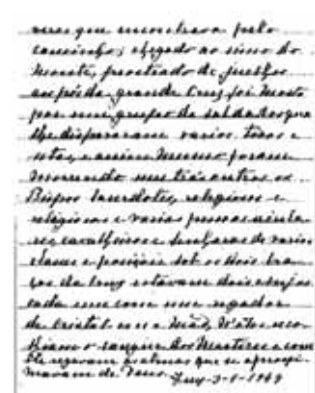 meras que encontrava pelo
caminho; chegado ao cimo do
monte, prostrado de juelhos
aos pés da grande Cruz foi morto
por um grupo de soldados que
lhe dispararam varios tiros e
setas, e assim mesmo foram
morrendo uns trás outros os
Bispos Sacerdotes, religiosos e
religiosas e varias pessoas secula
res, cavalheiros e senhoras de varias
classes e posições. Sob os dois bra
ços da Cruz estavam dois Anjos
cada um com um regador
de cristal em a mão, n'êles reco
lhiam o sangue dos Martires e com
êle regavam as almas que se aproxi
mavam de Deus.
Tuy-3-1-1944